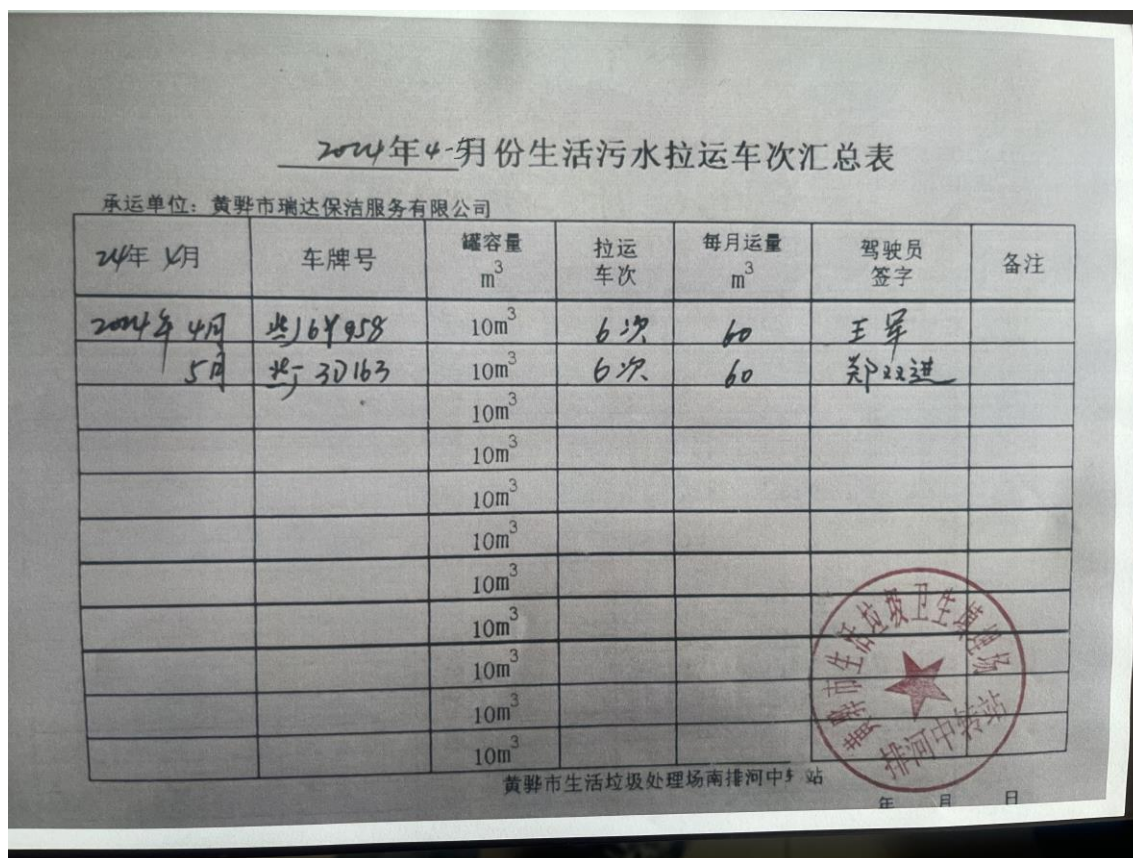 2024年4-5月份生活污水拉运车次汇总表
承运单位：黄骅市瑞达保洁服务有限公司
24年 4月 车牌号 罐容量 m³ 拉运车次 每月运量 m³ 驾驶员签字 备注
2024年 4月 冀J6Y958 10m³ 6次 60 王军
5月 冀J 3D163 10m³ 6次 60 郑双进
10m³
10m³
10m³
10m³
10m³
10m³
10m³
10m³
10m³
黄骅市生活垃圾卫生填埋场
排河中转站
黄骅市生活垃圾处理场南排河中转站
年 月 日